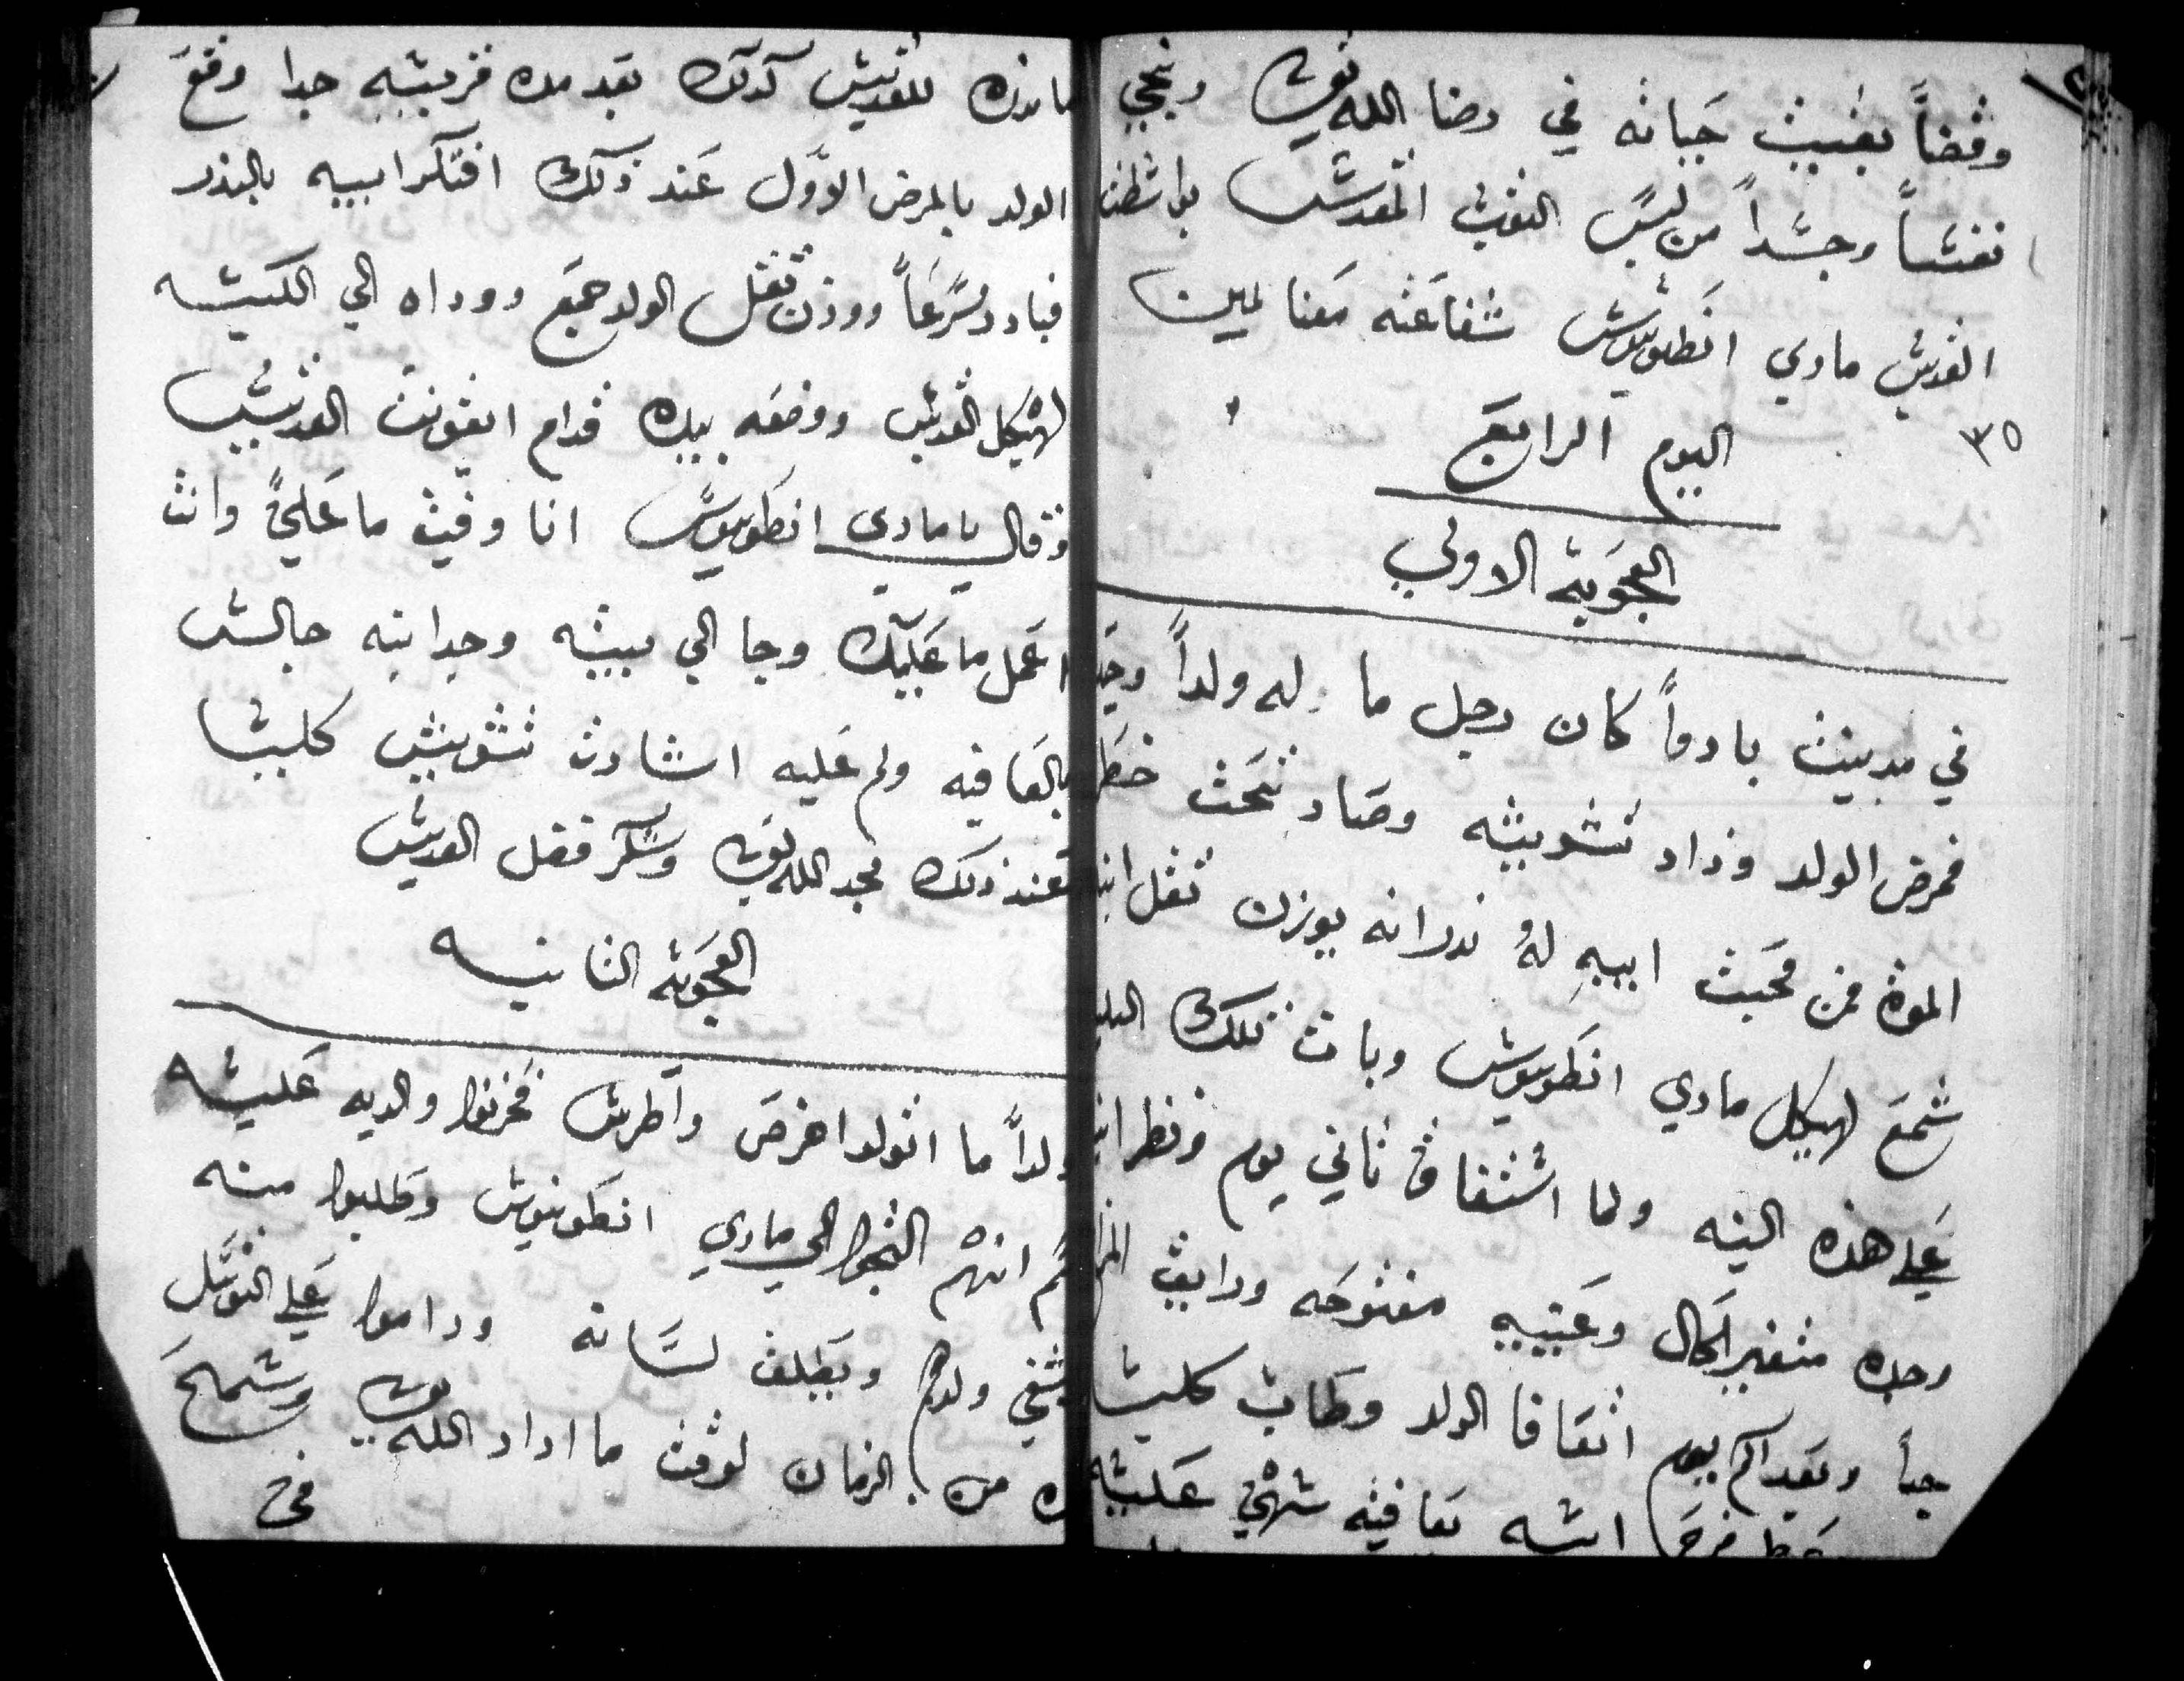 وقضاً بقييت حياته في رضا الله تعالى ونجي
نفساً وجسداً من لبس الثوب المقدس بواسطت
القديس ماري انطونيوس شفاعته معنا امين
٣٥
اليوم الرابع
العجوبة الاولي
في مدينت بادوا كان رجل ما له ولداً وحيد
فمرض الولد وزاد تشويشه وصار تحت خطر
الموت فمن محبت ابيه له ندر انه يوزن تقل ابنه
شمع لهيكل ماري انطونيوس وبات تلك الليله
علي هذه النيه ولما استفاق ثاني يوم ونظر ابنه
وجده متغير الحال وعينيه مفتوحه ورايق
جداً وبعد اكم يوم اتعافا الولد وطاب كليتا
فرح ابيه بعافيته سهي عليه
ما ندره للقديس كذلك بعد مده قريبه جدا وقع
الولد بالمرض الاوَّل عند ذلك افتكر ابيه بالندر
فبادر مسرعاً ووزن تقل الولد شمع ووداه الي الكنيسه
لهيكل القديس ووضعه بيده قدام ايقونت القديس
وقال يا ماري انطونيوس انا وفيت ما عليَّ وانت
اعمل ما عليك وجا الي بيته وجد ابنه جالس
بالعافيه ولم عليه اشارت تشويش كليتا
فعند ذلك مجد الله تعالى وشكر فضل القديس
العجوبة الثانيه
ولداً ما اتولد اخرص واطرش فحزنوا والديه عليه
ثم انهم التجوا الي ماري انطونيوس وطلبوا منه
يشفي ولدهم ويطلق لسانه وداموا علي التوسل
من الزمان لوقت ما اراد الله تعالى وسمح
في